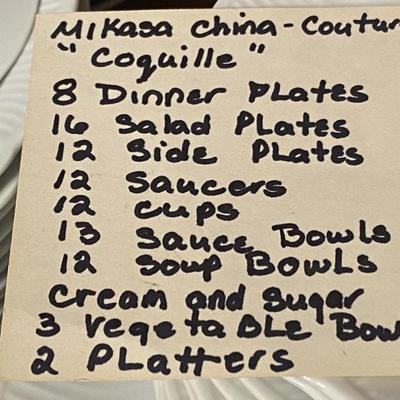 Mikasa China - Coutur
"Coquille"
8 Dinner Plates
16 Salad Plates
12 Side Plates
12 Saucers
12 cups
13 Sauce Bowls
12 Soup Bowls
Cream and Sugar
3 Vegetable Bow
2 Platters